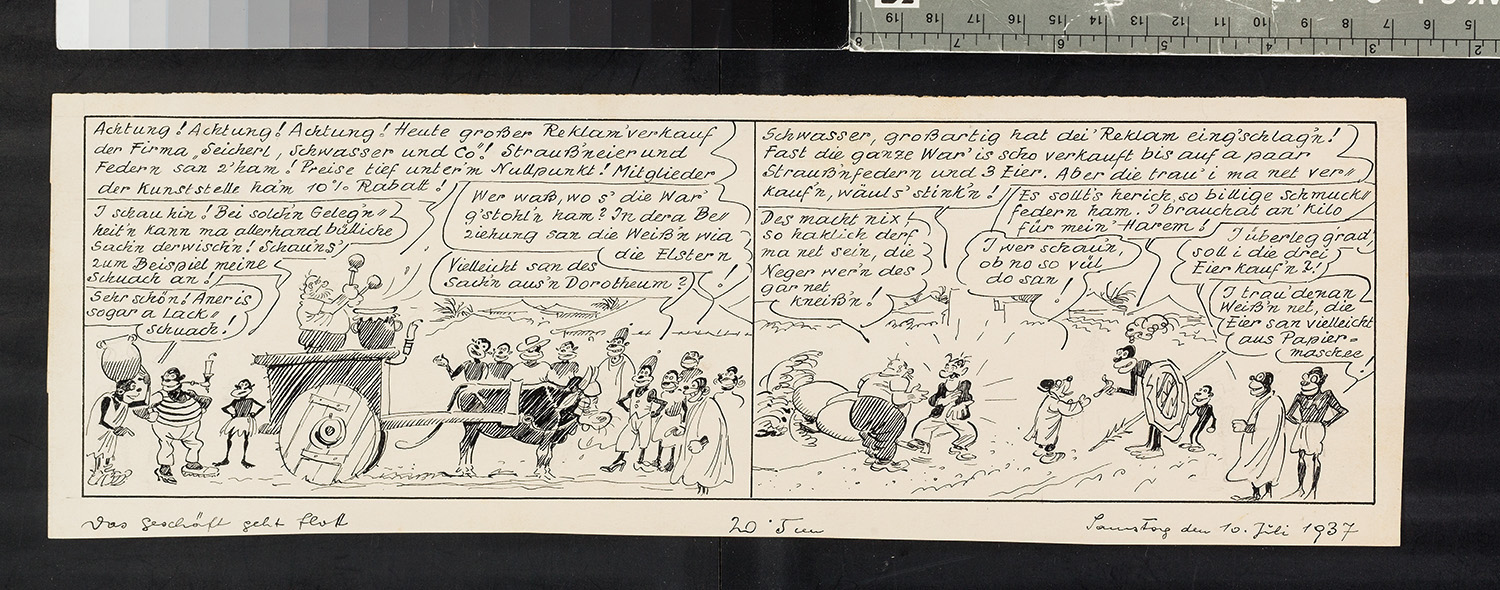 Achtung! Achtung! Achtung! Heute großer Reklam'verkauf
der Firma „Seicherl, Schwasser und Co"! Strauß'neier und
Federn san 2'ham! Preise tief unter'm Nullpunkt! Mitglieder
der Kunststelle ha'm 10% Rabatt!
I schau hin! Bei solch'n Geleg'n=
heit'n kann ma allerhand bülliche
Sach'n derwisch'n! Schau'ns'
zum Beispiel meine
Schuach an!
Sehr schön! Aner is
sogar a Lack=
schuach!
Wer waß, wo s' die War'
g'stohl'n ham? In dera Be=
ziehung san die Weiß'n wia
die Elstern
!
Vielleicht san des
Sach'n aus'n Dorotheum?
Schwasser, großartig hat dei' Reklam eing'schlag'n!
Fast die ganze War' is scho verkauft bis auf a paar
Strauß'nfedern und 3 Eier. Aber die trau' i ma net ver=
kauf'n, wäul's stink'n!
Des macht nix!
So haklich derf
ma net sein, die
Neger wer'n des
gar net
kneiß'n!
Es sollt's herich, so billige Schmuck=
federn ham. I brauchat an' Kilo
für mein' Harem!
I wer schau'n,
ob no so vül
do san!
I überleg grad,
soll i die drei
Eier kauf'n?!
I trau' denan
Weiß'n net, die
Eier san vielleicht
aus Papier=
maschee!
Das Geschäft geht flott
20·5 cm
Samstag den 10. Juli 1937
8 19 18 17 16 15 14 13 12 11 10 9 8 7 6 5
8 7 6 5 4 3 2